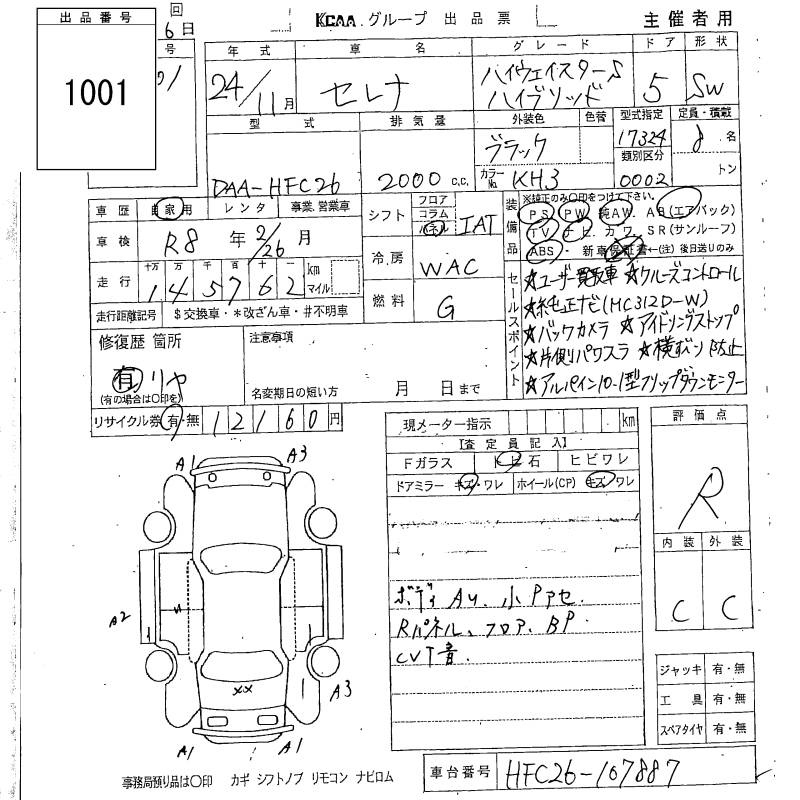 出品番号
1001
回
6日
号
01
KCAA グループ 出品票
主催者用
年式 車名 グレード ドア 形状
24/11月 セレナ ハイウェイスターS ハイブリッド 5 SW
型式 排気量 外装色 色替 型式指定 定員・積載
DAA-HFC26 2000 C.C. ブラック 17324 8名
カラーNo. KH3 類別区分 0002 トン
車歴 自家用 レンタ 事業.営業車
車検 R8年 2/26月
走行 十万 万 千 百 十 一 km マイル
1 4 5 7 6 2
走行距離記号 $交換車・*改ざん車・#不明車
シフト フロア コラム パネル IAT
冷房 WAC
燃料 G
装備品
※純正のみ○印をつけて下さい。
PS PW 純AW. AB(エアバック)
TV ナビ カワ. SR(サンルーフ)
ABS・新車保証書←(注)後日送りのみ
セールスポイント
★ユーザー買取車 ★クルーズコントロール
★純正ナビ(HC312D-W)
★バックカメラ ★アイドリングストップ
★片側パワスラ ★横すべり防止
★アルパイン10.1型フリップダウンモニター
修復歴 箇所
有 リヤ
(有の場合は○印を)
注意事項
名変期日の短い方 月 日まで
リサイクル券 有・無 12160円
現メーター指示 km
【査定員記入】
Fガラス トビ石 ヒビワレ
ドアミラー キズ・ワレ ホイール(CP) キズ ワレ
ボディ AU. 小Pアセ.
Rパネル、フロア、BP
CVT音.
評価点
R
内装 外装
C C
ジャッキ 有・無
工具 有・無
スペアタイヤ 有・無
A1 A3
A2
A3
A1 A1
XX
事務局預り品は○印 カギ シフトノブ リモコン ナビロム
車台番号 HFC26-107887